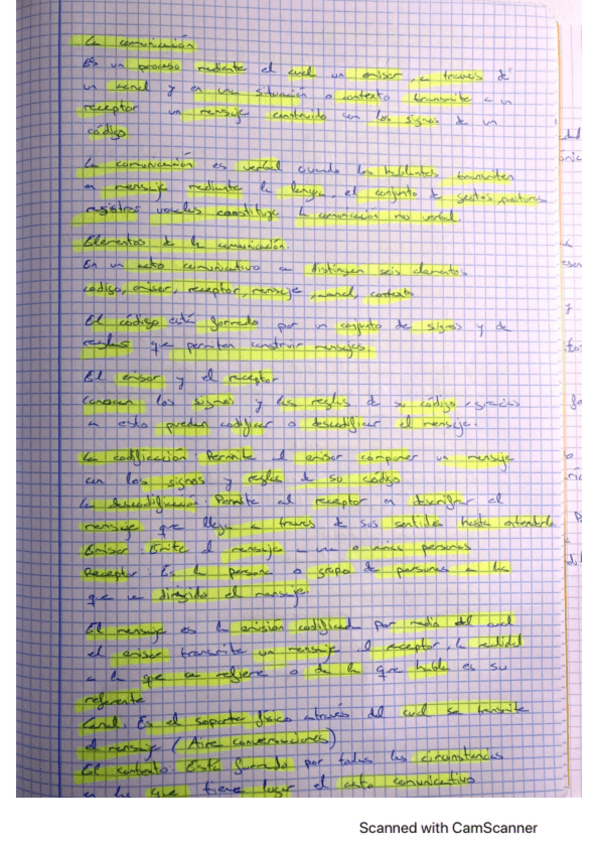 La comunicación
Es un proceso mediante el cual un emisor, a traves de
un canal y en una situación o contexto transmite a un
receptor un mensaje construido con los signos de un
código.
La comunicación es verbal cuando los hablantes transmiten
un mensaje mediante la lengua, el conjunto de gestos, posturas
registros vocales constituye la comunicación no verbal.
Elementos de la comunicación.
En un acto comunicativo se distinguen seis elementos
código, emisor, receptor, mensaje, canal, contexto
El código está formado por un conjunto de signos y de
reglas que permiten construir mensajes.
El emisor y el receptor
conocen los signos y las reglas de su código, gracias
a esto pueden codificar o descodificar el mensaje.
La codificación: Permite al emisor componer un mensaje
con los signos y reglas de su código
La descodificación: Permite al receptor descifrar el
mensaje que llega a traves de sus sentidos hasta entenderlo
Emisor: Emite el mensaje a una o varias personas
Receptor: Es la persona o grupo de personas a las
que va dirigido el mensaje.
El mensaje es la emisión codificada por medio del cual
el emisor transmite un mensaje al receptor, la realidad
a la que se refiere o de la que habla es su
referente
Canal: Es el soporte físico através del cual se transmite
el mensaje (Aire conversaciones)
El contexto: Está formado por todas las circunstancias
en las que tiene lugar el acto comunicativo
Scanned with CamScanner